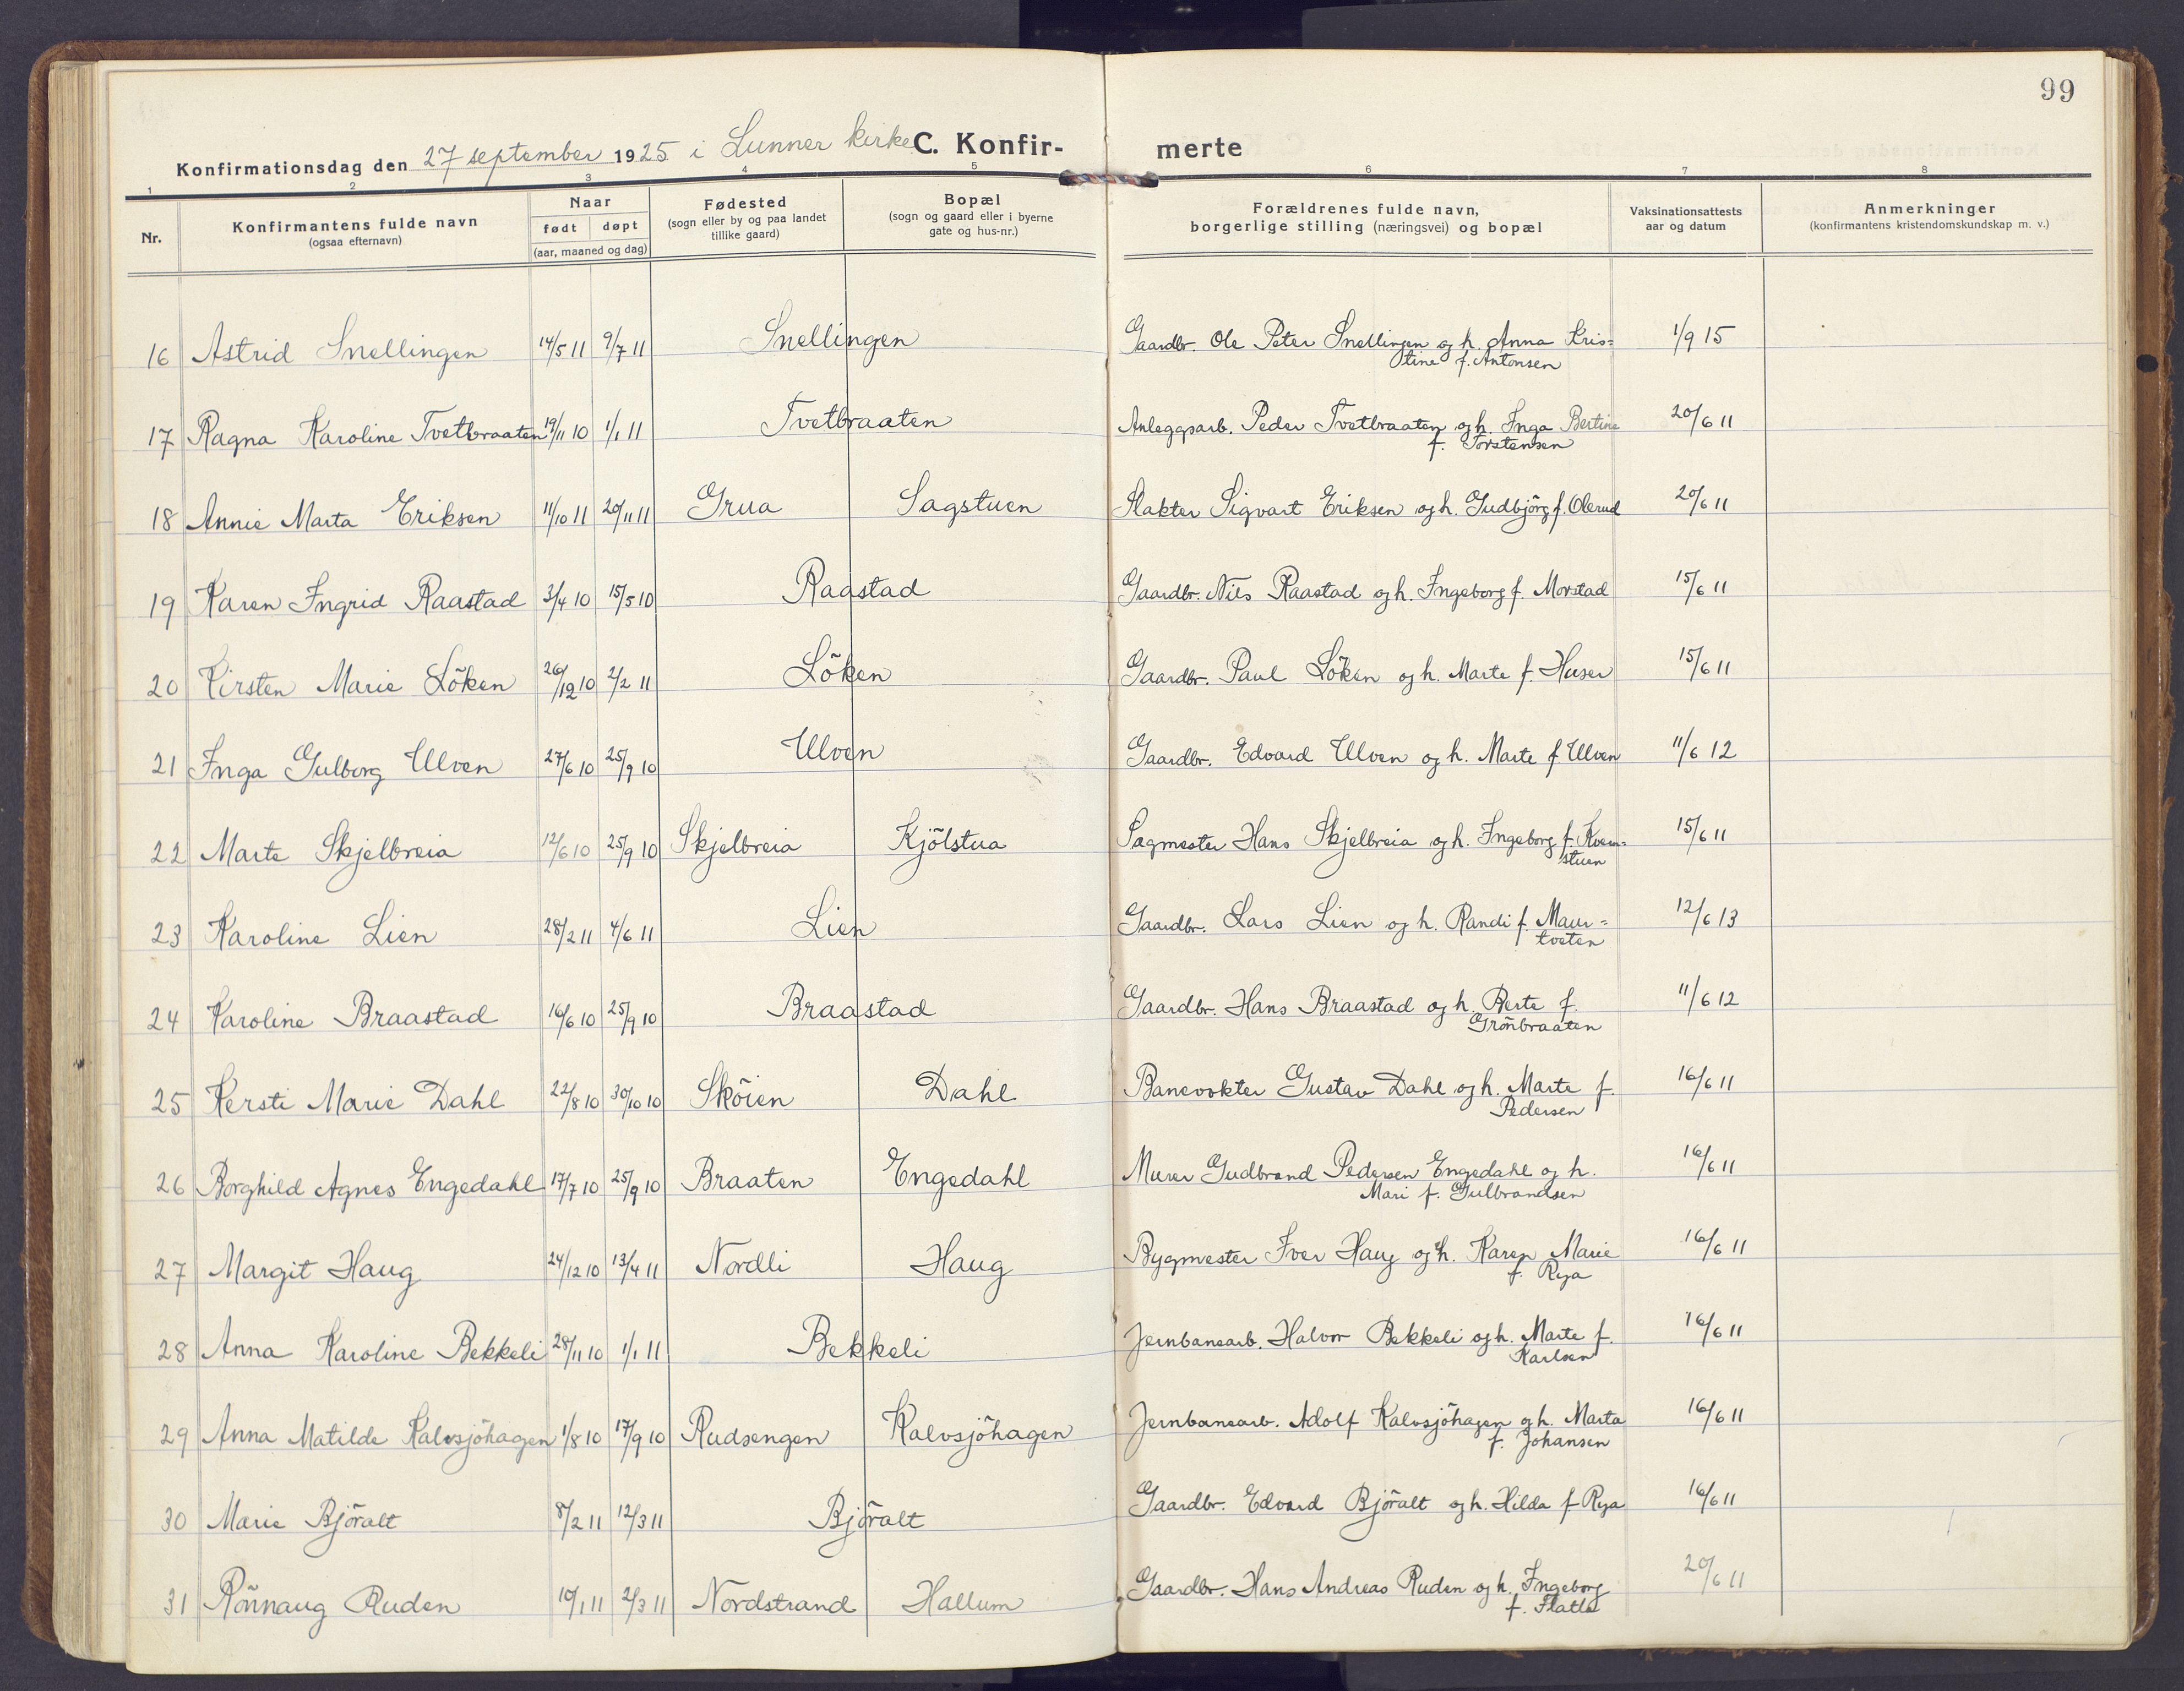 99
Konfirmationsdag den 27 september 1925 i Lunner kirke C. Konfir- merte
1 2 3 4 5 6 7 8
Nr. Konfirmantens fulde navn (ogsaa efternavn) Naar født døpt (aar, maaned og dag) Fødested (sogn eller by og paa landet tillike gaard) Bopæl (sogn og gaard eller i byerne gate og hus-nr.) Forældrenes fulde navn, borgerlige stilling (næringsvei) og bopæl Vaksinationsattests aar og datum Anmerkninger (konfirmantens kristendomskundskap m. v.)
16 Astrid Snellingen 14/5 11 9/7 11 Snellingen Gaardbr. Ole Peter Snellingen og h. Anna Kris=
stine f. Antonsen 1/9 15
17 Ragna Karoline Tvetbraaten 19/11 10 1/1 11 Tvetbraaten Anleggsarb. Peder Tvetbraaten og h. Inga Bertine
f. Torstensen 20/6 11
18 Annie Marta Eriksen 11/10 11 20/11 11 Grua Sagstuen Slakter Sigvart Eriksen og h. Gudbjörg f. Olerud 20/6 11
19 Karen Ingrid Raastad 3/4 10 15/5 10 Raastad Gaardbr. Nils Raastad og h. Ingeborg f. Morstad 15/6 11
20 Kirsten Marie Löken 26/12 10 2/2 11 Löken Gaardbr. Paul Löken og h. Marte f. Huser 15/6 11
21 Inga Gulborg Ulven 27/6 10 25/9 10 Ulven Gaardbr. Edvard Ulven og h. Marte f Ulven 11/6 12
22 Marte Skjelbreia 12/6 10 25/9 10 Skjelbreia Kjölstua Sagmester Hans Skjelbreia og h. Ingeborg f. Kvern=
stuen 15/6 11
23 Karoline Lien 28/2 11 4/6 11 Lien Gaardbr. Lars Lien og h. Randi f. Maur=
tveten 12/6 13
24 Karoline Braastad 16/6 10 25/9 10 Braastad Gaardbr. Hans Braastad og h. Berte f.
Grönbraaten 11/6 12
25 Kersti Marie Dahl 22/8 10 30/10 10 Sköien Dahl Banevokter Gustav Dahl og h. Marte f.
Pedersen 16/6 11
26 Borghild Agnes Engedahl 17/7 10 25/9 10 Braaten Engedahl Murer Gudbrand Pedersen Engedahl og h.
Mari f. Gulbrandsen 16/6 11
27 Margit Haug 24/12 10 13/4 11 Nordli Haug Bygmester Iver Haug og h. Karen Marie
f. Rya 16/6 11
28 Anna Karoline Bekkeli 28/11 10 1/1 11 Bekkeli Jernbanearb. Halvor Bekkeli og h. Marte f.
Karlsen 16/6 11
29 Anna Matilde Kalvsjöhagen 1/8 10 17/9 10 Rudsengen Kalvsjöhagen Jernbanearb. Adolf Kalvsjöhagen og h. Marta
f. Johansen 16/6 11
30 Marie Björalt 8/2 11 12/3 11 Björalt Gaardbr. Edvard Björalt og h. Hilda f Rya 16/6 11
31 Rönnaug Ruden 10/1 11 2/3 11 Nordstrand Hallum Gaardbr. Hans Andreas Ruden og h. Ingeborg
f. Flatla 20/6 11